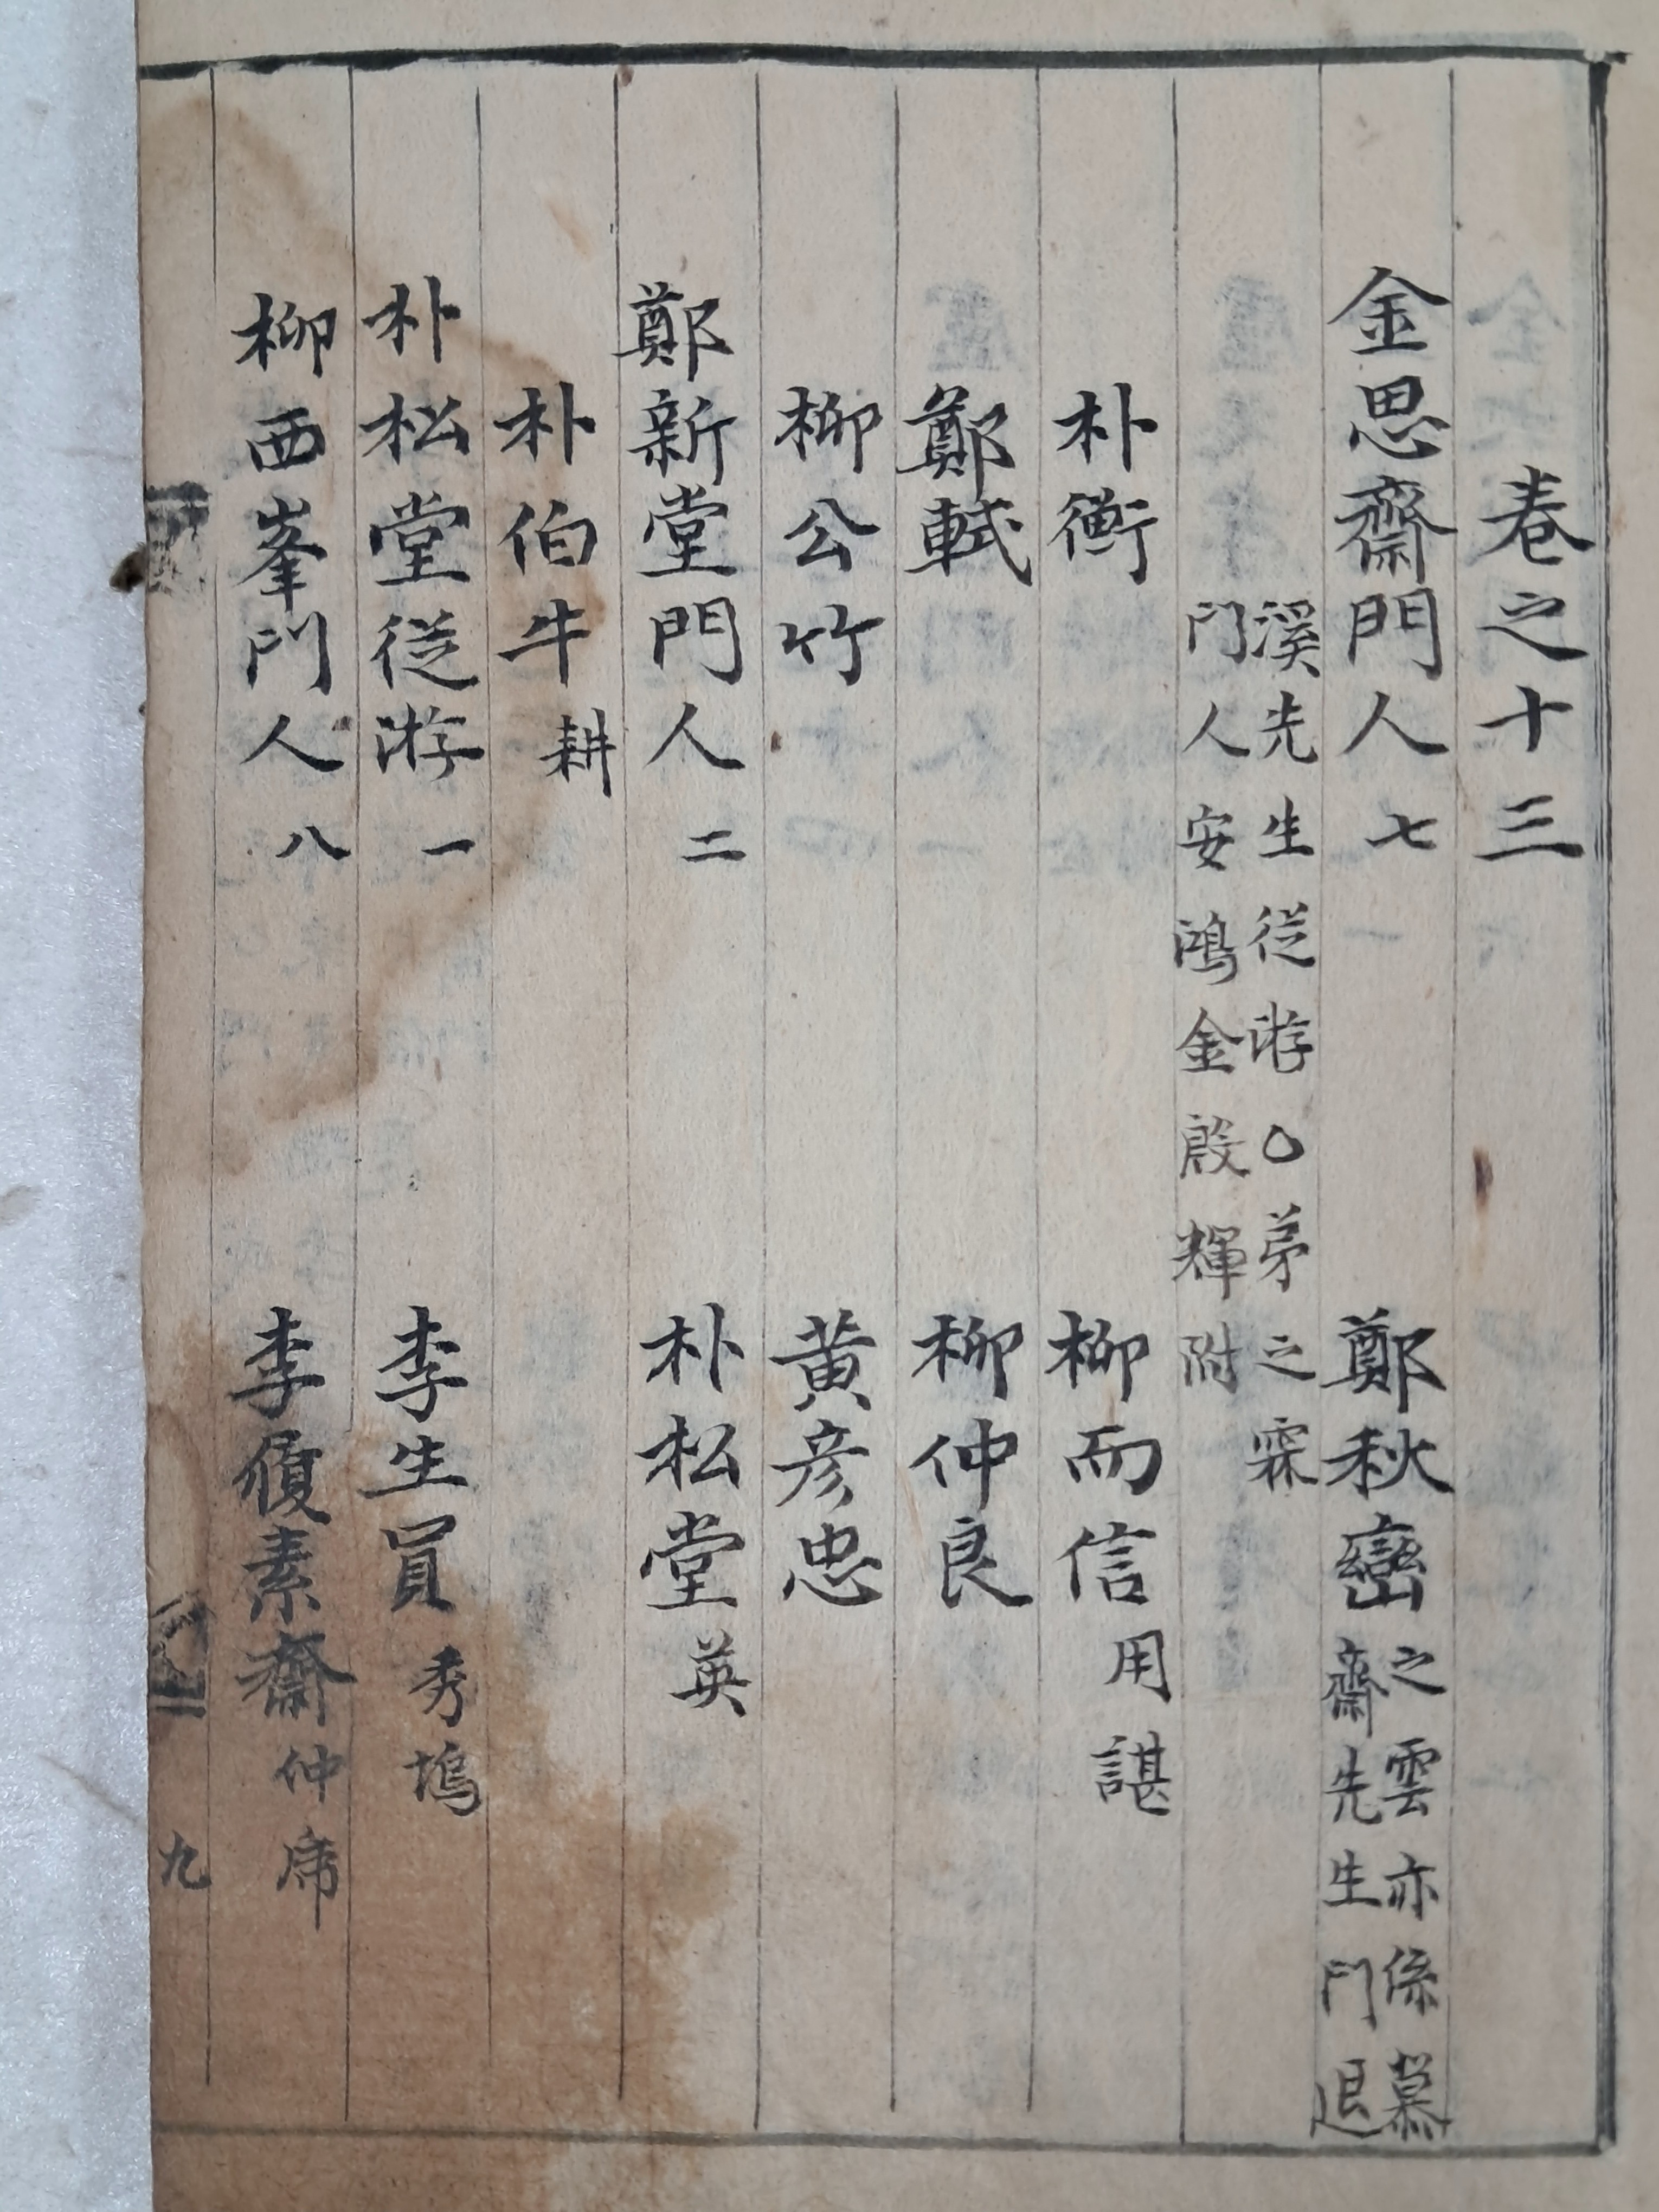 卷之十三
金思齋門人 七 鄭秋巒 之雲亦係慕
齋先生門退
溪先生從游○弟之霖
門人安鴻金殷輝附
朴衡 柳而信 用諶
鄭軾 柳仲良
柳公竹 黃彦忠
鄭新堂門人 二 朴松堂 英
朴伯牛 耕
朴松堂從游 一 李生員 秀塢
柳西峯門人 八 李履素齋 仲席
九